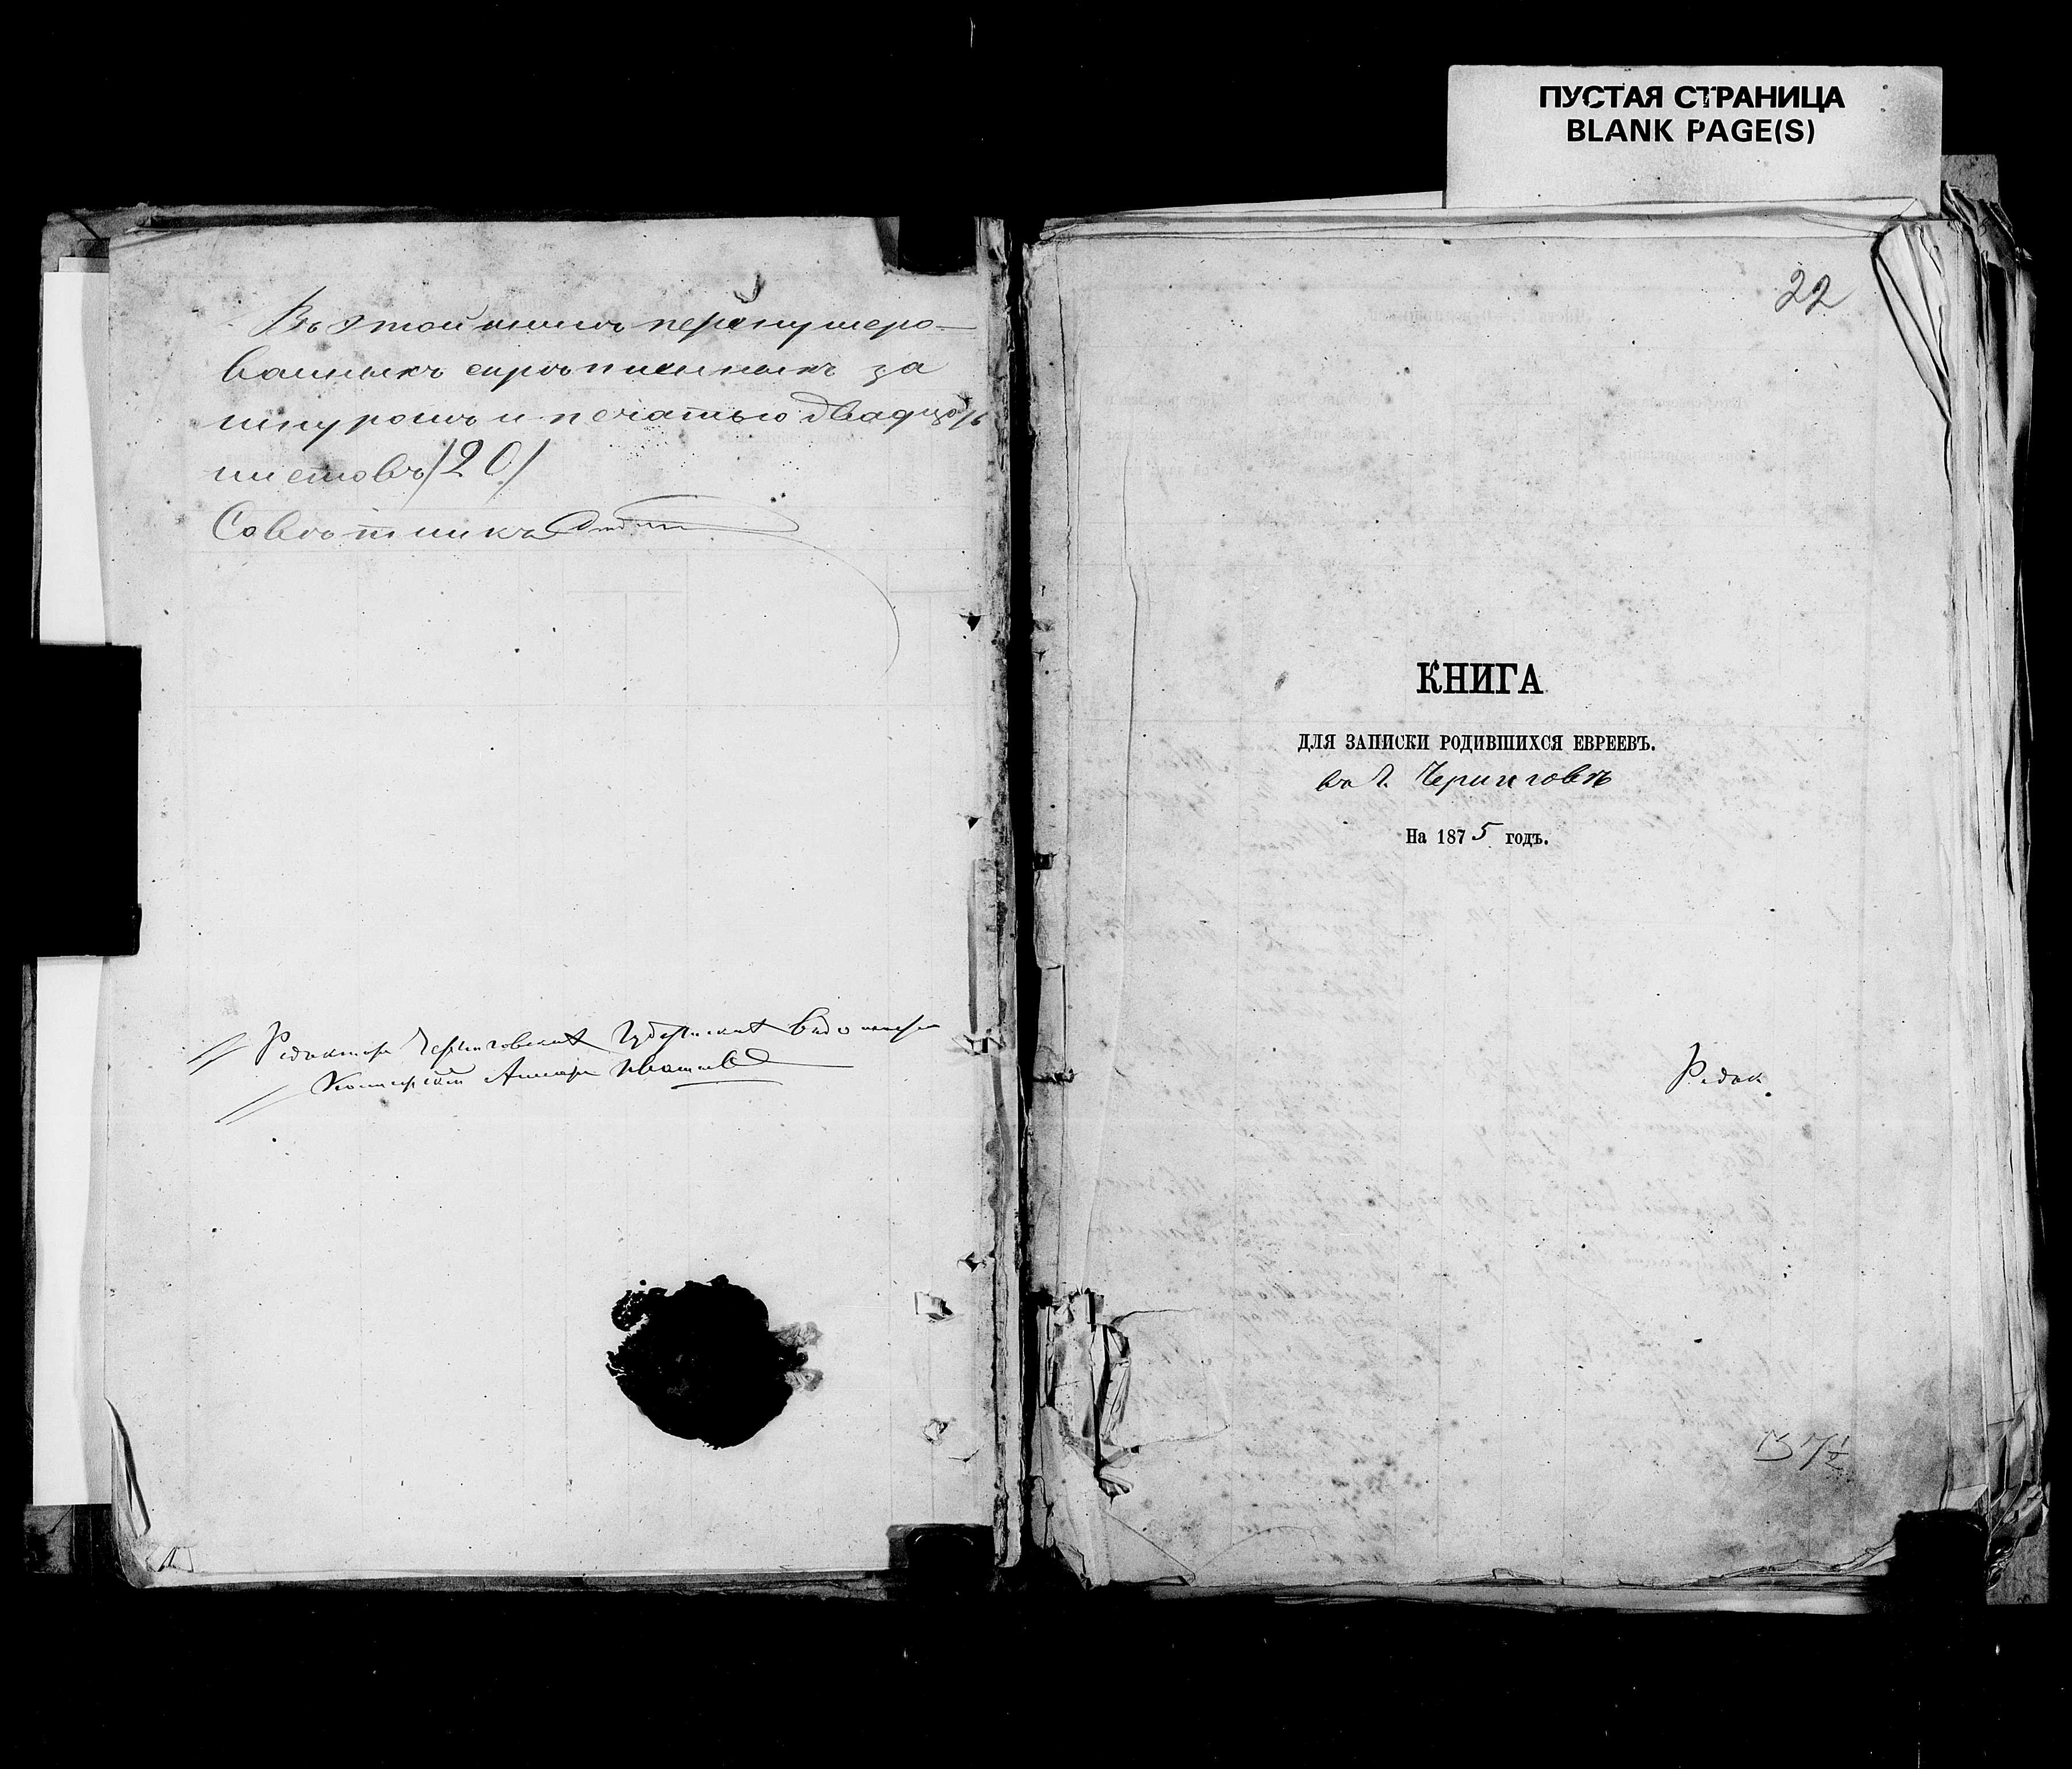 Въ этой книгѣ перенумеро-
ванныхъ скрѣпленныхъ за
шнуромъ и печатью двадцать
листовъ /20/
Совѣтникъ
Редакторъ Черниговскихъ Губернскихъ Вѣдомостей
ПУСТАЯ СТРАНИЦА
BLANK PAGE(S)
22
КНИГА
ДЛЯ ЗАПИСКИ РОДИВШИХСЯ ЕВРЕЕВЪ.
въ г. Черниговѣ
На 1875 годъ.
Редак